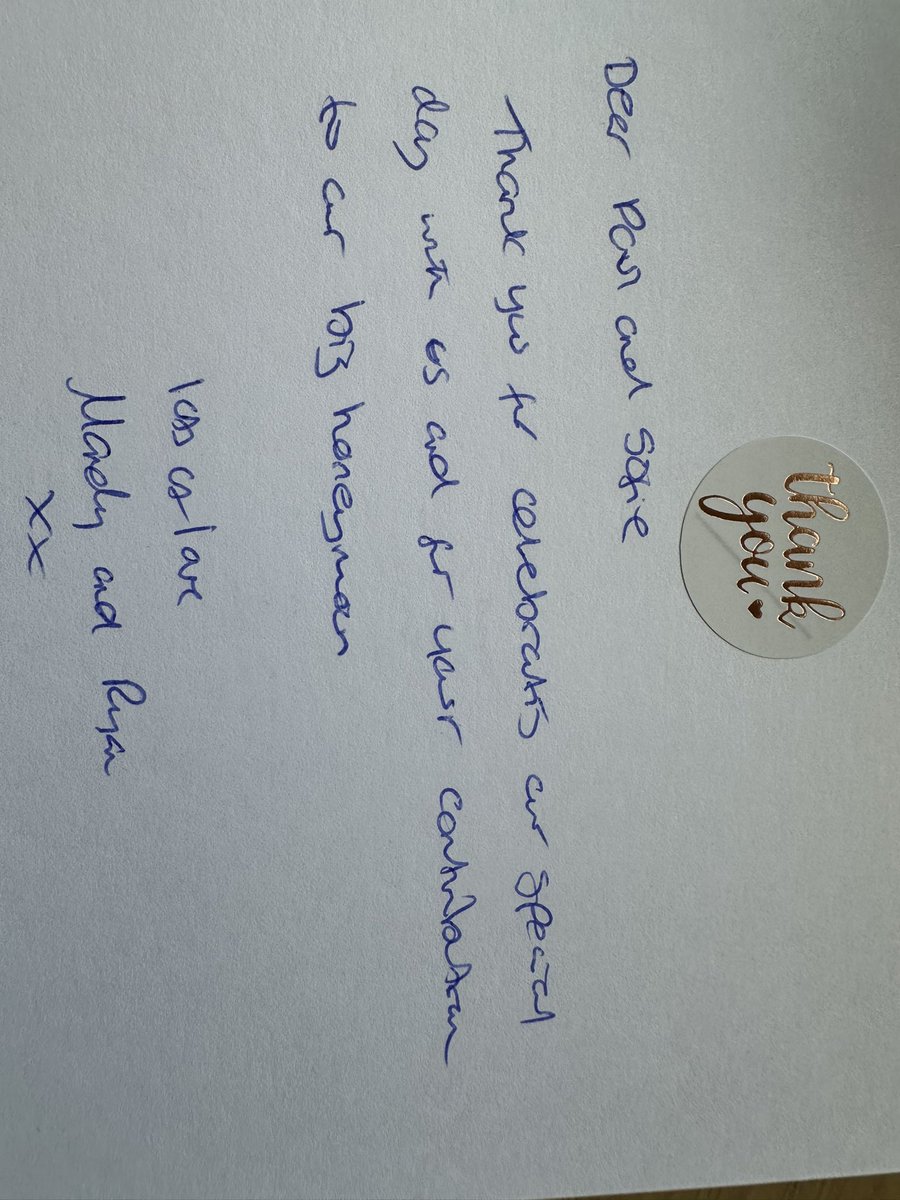 thank
you
Dear Paul and Sofie
Thank you for celebrating our special
day with us and for your contribution
to our big honeymoon
lots of love
Mandy and Ryan
xx